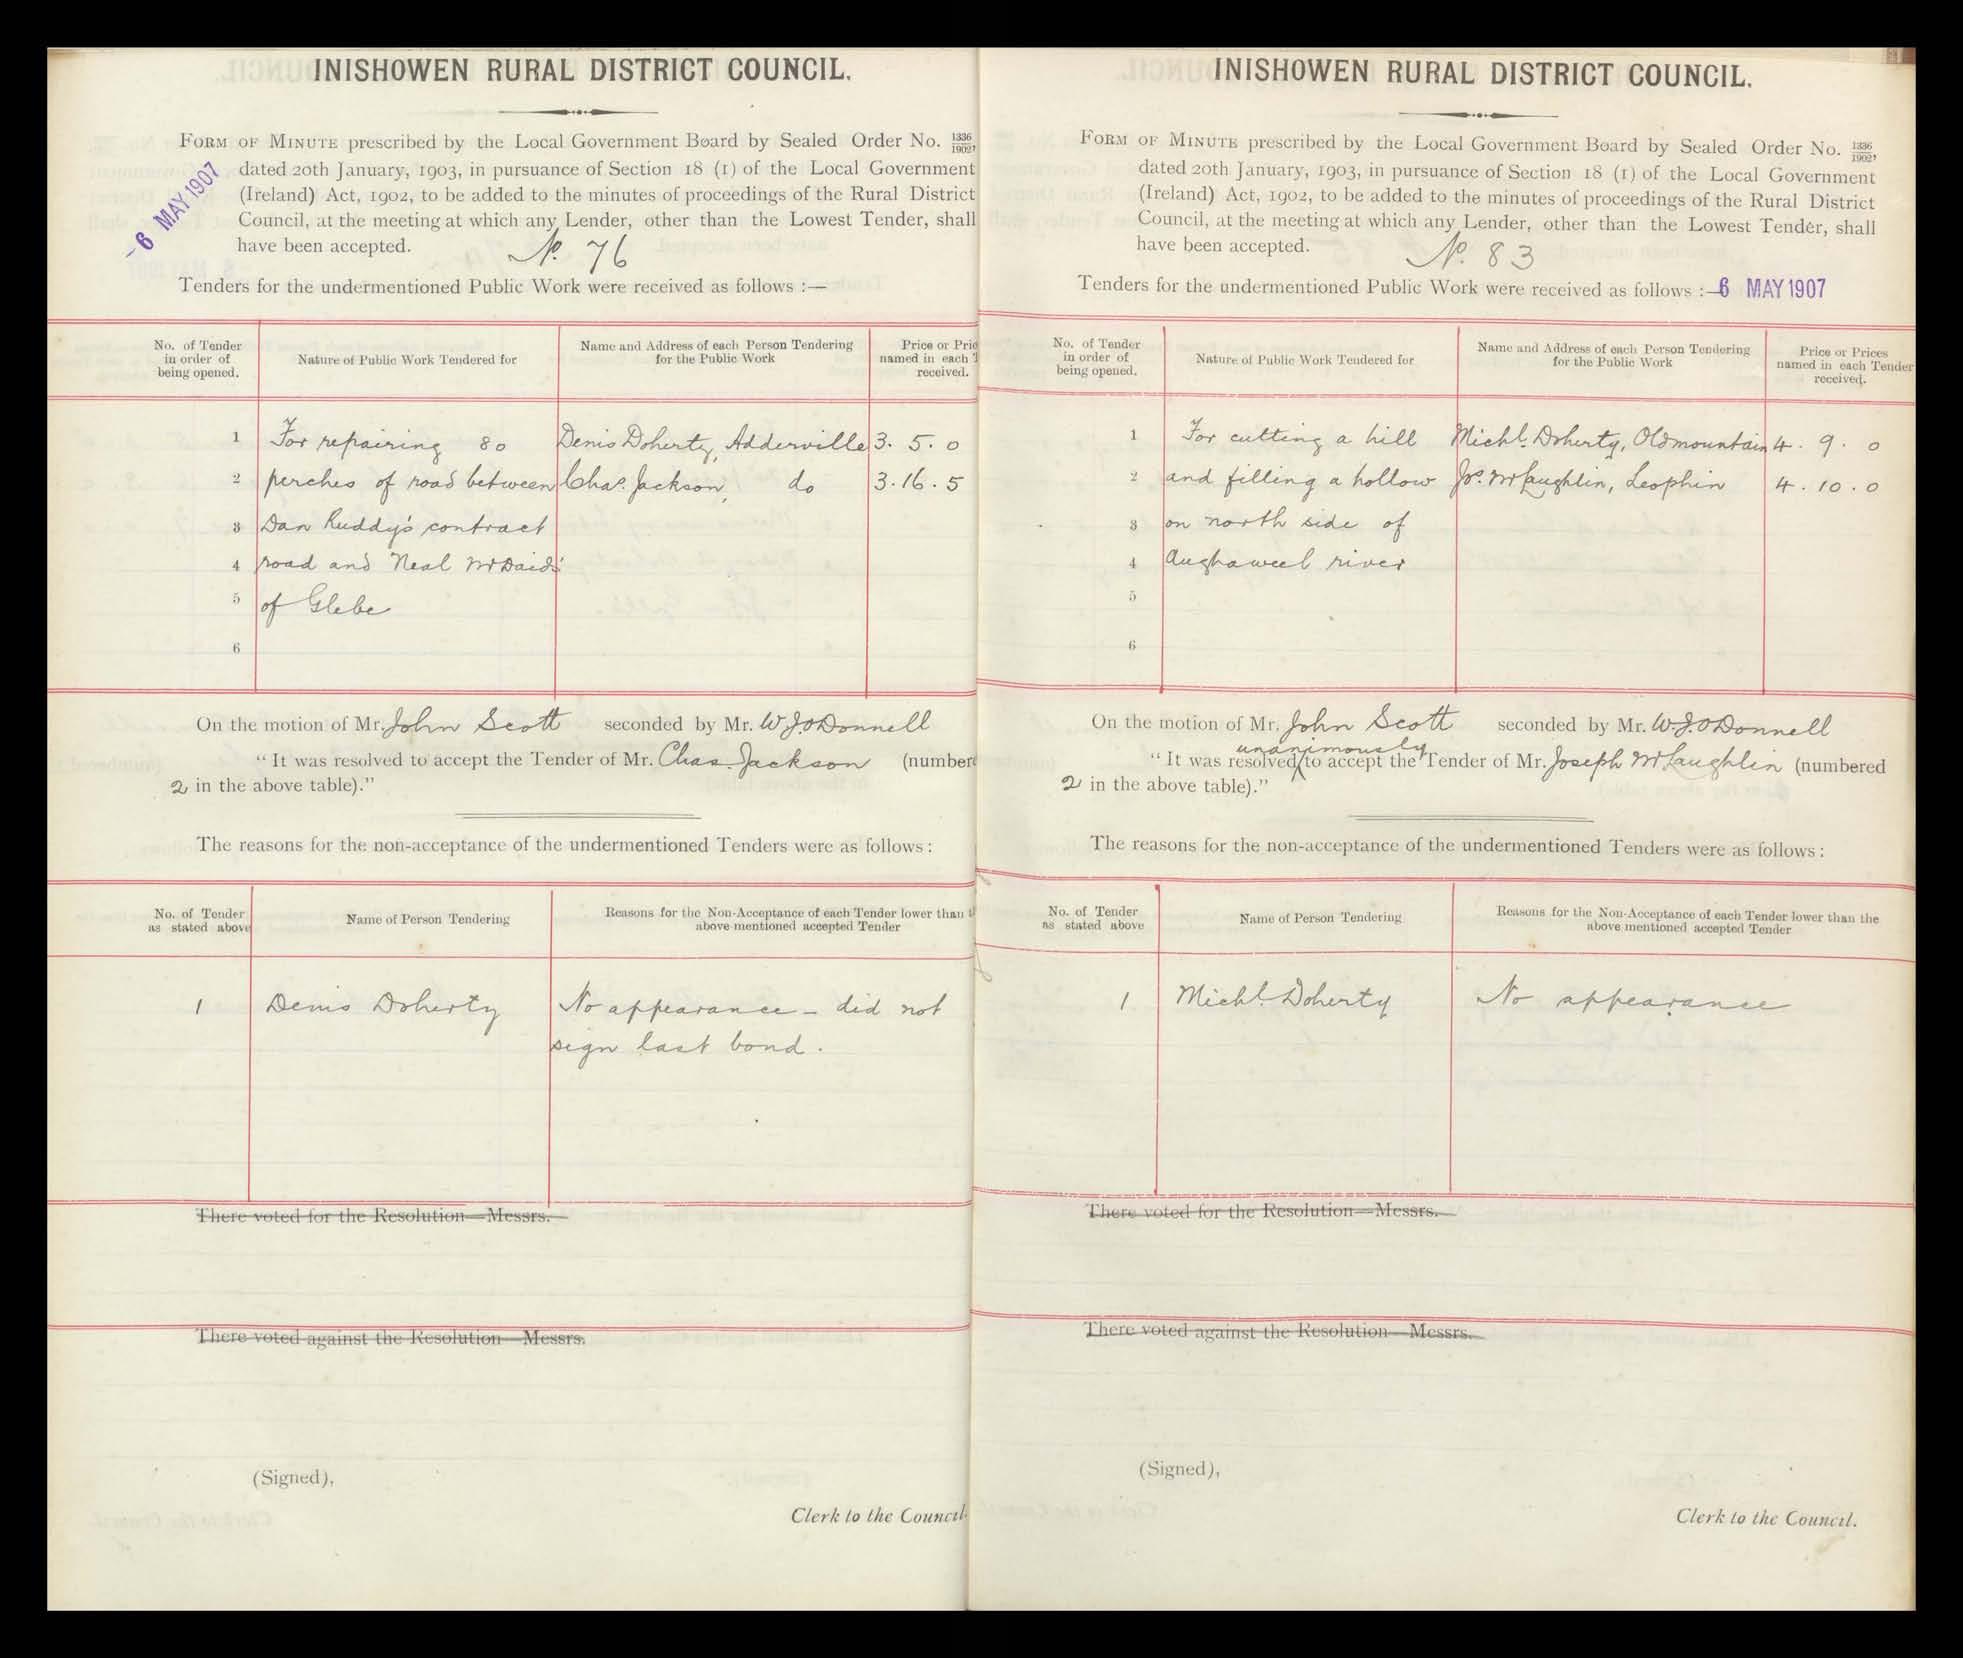 INISHOWEN RURAL DISTRICT COUNCIL.
FORM OF MINUTE prescribed by the Local Government Board by Sealed Order No. 1336/1902,
dated 20th January, 1903, in pursuance of Section 18 (1) of the Local Government
(Ireland) Act, 1902, to be added to the minutes of proceedings of the Rural District
Council, at the meeting at which any Lender, other than the Lowest Tender, shall
have been accepted.
- 6 MAY 1907
No. 76
Tenders for the undermentioned Public Work were received as follows :—
No. of Tender in order of being opened.
Nature of Public Work Tendered for
Name and Address of each Person Tendering for the Public Work
Price or Pric named in each T received.
1 For repairing 80 Denis Doherty, Adderville 3. 5. 0
2 perches of road between Chas. Jackson, do 3. 16. 5
3 Dan Ruddy's contract
4 road and Neal McDaid's
5 of Glebe
6
On the motion of Mr. John Scott seconded by Mr. W. J. O'Donnell
"It was resolved to accept the Tender of Mr. Chas. Jackson (number
2 in the above table)."
The reasons for the non-acceptance of the undermentioned Tenders were as follows :
No. of Tender as stated above
Name of Person Tendering
Reasons for the Non-Acceptance of each Tender lower than t above-mentioned accepted Tender
1 Denis Doherty No appearance - did not
sign last bond.
There voted for the Resolution—Messrs.
There voted against the Resolution—Messrs.
(Signed),
Clerk to the Council.
INISHOWEN RURAL DISTRICT COUNCIL.
FORM OF MINUTE prescribed by the Local Government Board by Sealed Order No. 1336/1902,
dated 20th January, 1903, in pursuance of Section 18 (1) of the Local Government
(Ireland) Act, 1902, to be added to the minutes of proceedings of the Rural District
Council, at the meeting at which any Lender, other than the Lowest Tender, shall
have been accepted.
No. 83
Tenders for the undermentioned Public Work were received as follows :— 6 MAY 1907
No. of Tender in order of being opened.
Nature of Public Work Tendered for
Name and Address of each Person Tendering for the Public Work
Price or Prices named in each Tender received.
1 For cutting a hill Michl. Doherty, Oldmountain 4. 9. 0
2 and filling a hollow Js. McLaughlin, Leophin 4. 10. 0
3 on north side of
4 Aughaweel river
5
6
On the motion of Mr. John Scott seconded by Mr. W. J. O'Donnell
"It was resolved unanimously to accept the Tender of Mr. Joseph McLaughlin (numbered
2 in the above table)."
The reasons for the non-acceptance of the undermentioned Tenders were as follows :
No. of Tender as stated above
Name of Person Tendering
Reasons for the Non-Acceptance of each Tender lower than the above mentioned accepted Tender
1 Michl. Doherty No appearance
There voted for the Resolution—Messrs.
There voted against the Resolution—Messrs.
(Signed),
Clerk to the Council.